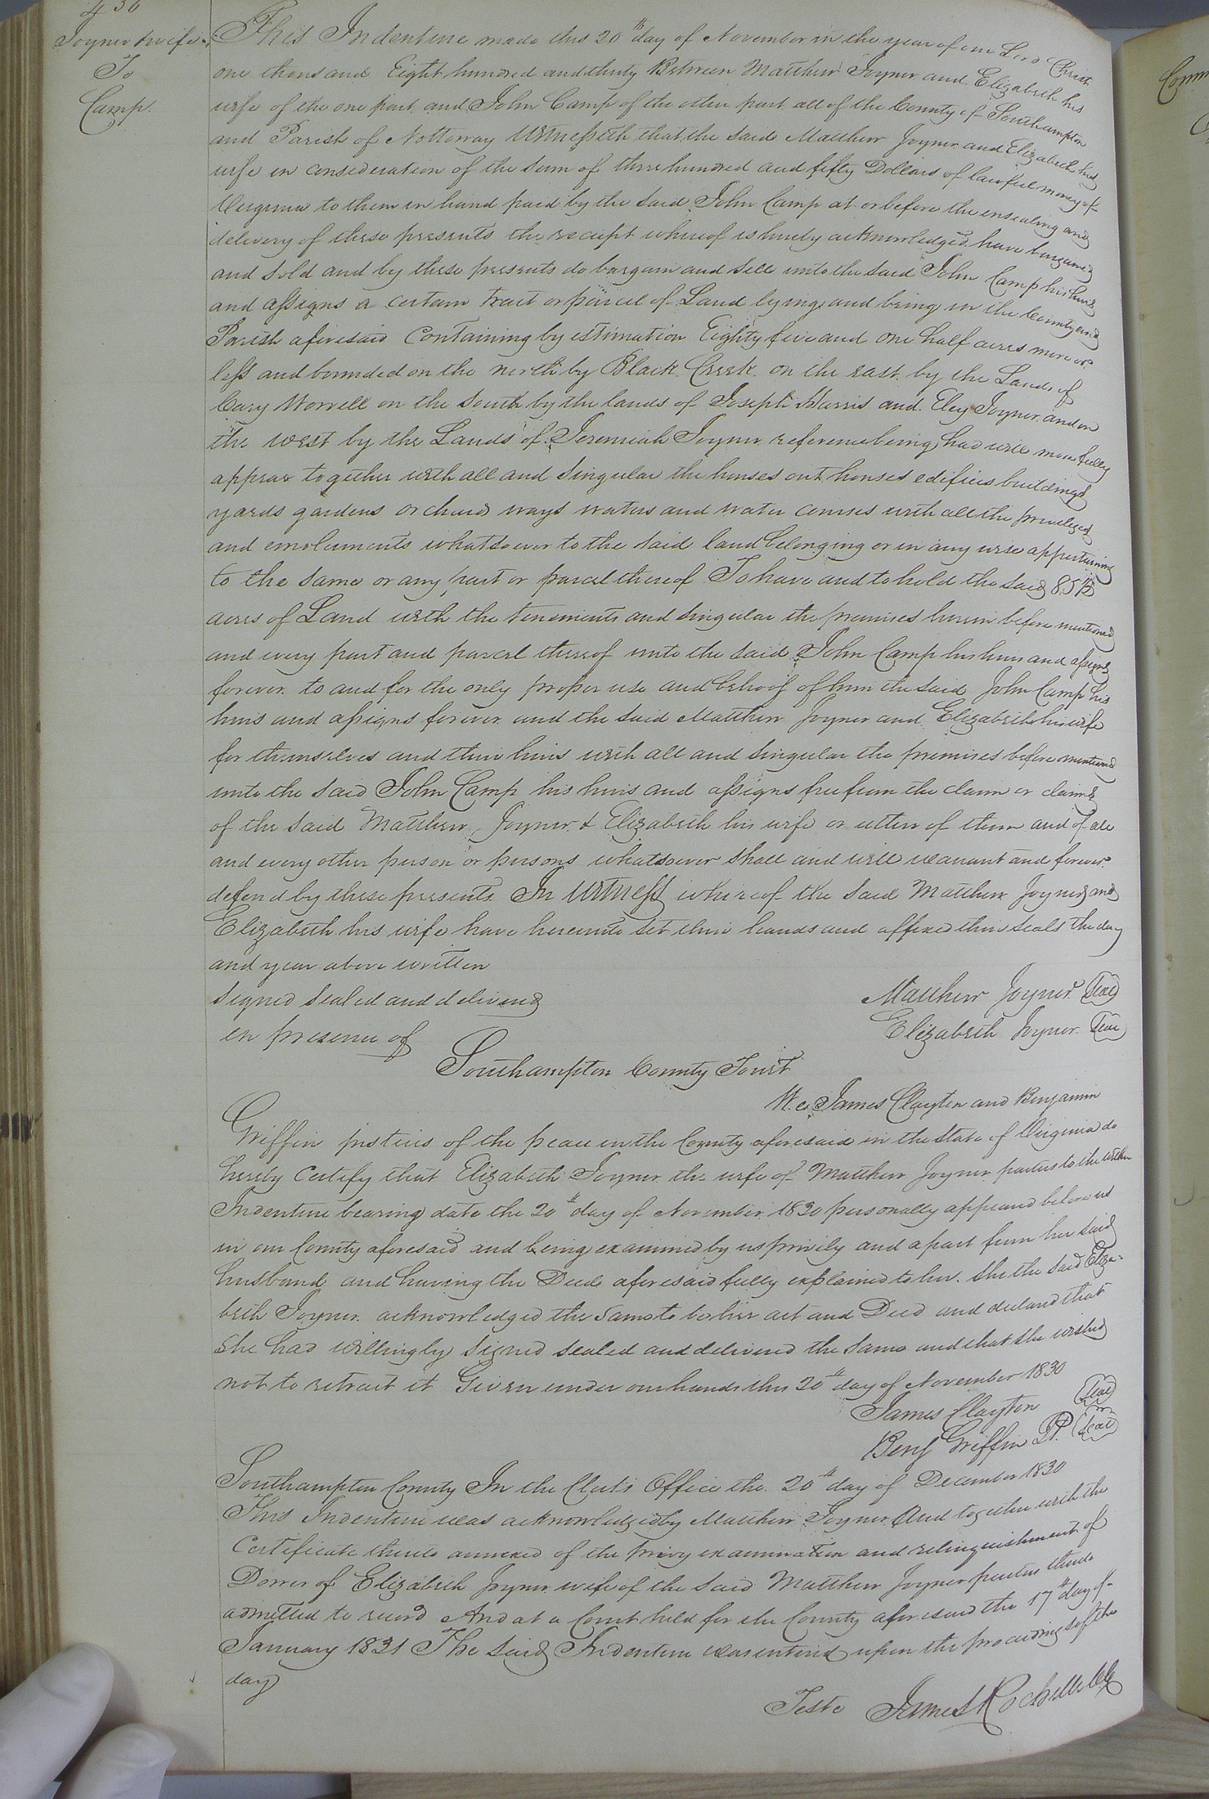 436
Joyner & wife
To
Camp.
This Indenture made this 20th day of November in the year of our Lord Christ
one thousand Eight hundred and thirty Between Matthew Joyner and Elizabeth his
wife of the one part and John Camp of the other part all of the County of Southampton
and Parish of Nottoway Witnesseth that the said Matthew Joyner and Elizabeth his
wife in consideration of the sum of three hundred and fifty Dollars of lawful money of
Virginia to them in hand paid by the said John Camp at or before the ensealing and
delivery of these presents the receipt whereof is hereby acknowledged have bargained
and sold and by these presents do bargain and sell unto the said John Camp his heirs
and assigns a certain tract or parcel of Land lying and being in the County and
Parish aforesaid Containing by estimation Eighty five and one half acres more or
less and bounded on the north by Black Creek on the east by the Lands of
Cary Worrell on the South by the lands of Joseph Harris and Eley Joyner and on
the west by the Lands of Jeremiah Joyner reference being had will more fully
appear together with all and Singular the houses out houses edifices buildings
yards gardens orchards ways waters and water courses with all the privileges
and emoluments whatsoever to the said land belonging or in any wise appertaining
to the same or any part or parcel thereof To have and to hold the said 85½
acres of Land with the tenements and singular the premises herein before mentioned
and every part and parcel thereof unto the said John Camp his heirs and assigns
forever to and for the only proper use and behoof of him the said John Camp his
heirs and assigns forever and the said Matthew Joyner and Elizabeth his wife
for themselves and their heirs with all and singular the premises before mentioned
unto the said John Camp his heirs and assigns free from the claim or claims
of the said Matthew Joyner & Elizabeth his wife or either of them and of all
and every other person or persons whatsoever shall and will warrant and forever
defend by these presents In Witness whereof the said Matthew Joyner and
Elizabeth his wife have hereunto set their hands and affixed their seals the day
and year above written
Signed Sealed and delivered
Matthew Joyner Seal
in presence of
Elizabeth Joyner Seal
Southampton County Towit
We James Clayton and Benjamin
Griffin justices of the peace in the County aforesaid in the State of Virginia do
hereby Certify that Elizabeth Joyner the wife of Matthew Joyner parties to the within
Indenture bearing date the 20th day of November 1830 personally appeared before us
in our County aforesaid and being examined by us privily and apart from her said
husband and having the Deed aforesaid fully explained to her. She the said Eliza-
beth Joyner acknowledged the Same to be her act and Deed and declared that
She had willingly Signed Sealed and delivered the Same and that she wished
not to retract it Given under our hands this 20th day of November 1830
James Clayton Seal
Benj Griffin Seal
Southampton County In the Clerk's Office the 20th day of December 1830
This Indenture was acknowledged by Matthew Joyner And together with the
Certificate thereto annexed of the privy examination and relinquishment of
Dower of Elizabeth Joyner wife of the said Matthew Joyner parties thereto
admitted to record And at a Court held for the County aforesaid the 17th day of
January 1831 The Said Indenture was entered upon the proceedings of the
day
Teste James Rochelle Clk